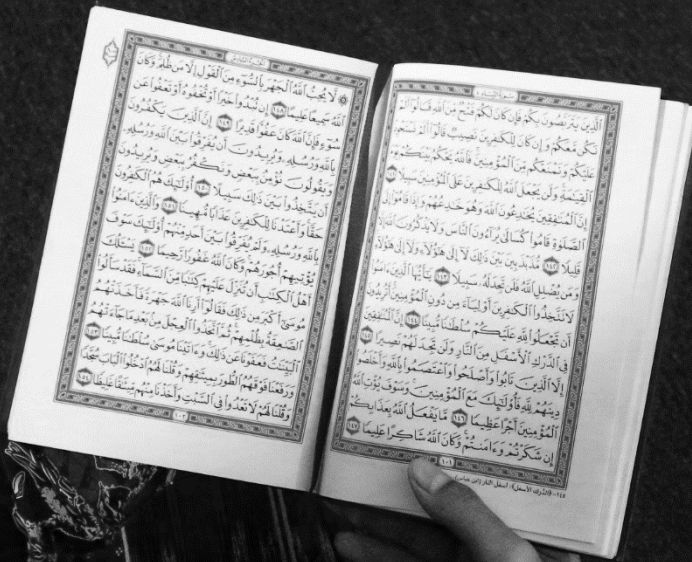 سُورَةُ النِّسَاء ٤
ٱلَّذِينَ يَتَرَبَّصُونَ بِكُمْ فَإِن كَانَ لَكُمْ فَتْحٌ مِّنَ ٱللَّهِ قَالُوٓا۟ أَلَمْ
نَكُن مَّعَكُمْ وَإِن كَانَ لِلْكَٰفِرِينَ نَصِيبٌ قَالُوٓا۟ أَلَمْ نَسْتَحْوِذْ
عَلَيْكُمْ وَنَمْنَعْكُم مِّنَ ٱلْمُؤْمِنِينَ فَٱللَّهُ يَحْكُمُ بَيْنَكُمْ يَوْمَ
ٱلْقِيَٰمَةِ وَلَن يَجْعَلَ ٱللَّهُ لِلْكَٰفِرِينَ عَلَى ٱلْمُؤْمِنِينَ سَبِيلًا ١٤١
إِنَّ ٱلْمُنَٰفِقِينَ يُخَٰدِعُونَ ٱللَّهَ وَهُوَ خَٰدِعُهُمْ وَإِذَا قَامُوٓا۟ إِلَى
ٱلصَّلَوٰةِ قَامُوا۟ كُسَالَىٰ يُرَآءُونَ ٱلنَّاسَ وَلَا يَذْكُرُونَ ٱللَّهَ إِلَّا
قَلِيلًا ١٤٢ مُّذَبْذَبِينَ بَيْنَ ذَٰلِكَ لَآ إِلَىٰ هَٰٓؤُلَآءِ وَلَآ إِلَىٰ هَٰٓؤُلَآءِ
وَمَن يُضْلِلِ ٱللَّهُ فَلَن تَجِدَ لَهُۥ سَبِيلًا ١٤٣ يَٰٓأَيُّهَا ٱلَّذِينَ ءَامَنُوا۟
لَا تَتَّخِذُوا۟ ٱلْكَٰفِرِينَ أَوْلِيَآءَ مِن دُونِ ٱلْمُؤْمِنِينَ أَتُرِيدُونَ
أَن تَجْعَلُوا۟ لِلَّهِ عَلَيْكُمْ سُلْطَٰنًا مُّبِينًا ١٤٤ إِنَّ ٱلْمُنَٰفِقِينَ
فِى ٱلدَّرْكِ ٱلْأَسْفَلِ مِنَ ٱلنَّارِ وَلَن تَجِدَ لَهُمْ نَصِيرًا ١٤٥
إِلَّا ٱلَّذِينَ تَابُوا۟ وَأَصْلَحُوا۟ وَٱعْتَصَمُوا۟ بِٱللَّهِ وَأَخْلَصُوا۟
دِينَهُمْ لِلَّهِ فَأُو۟لَٰٓئِكَ مَعَ ٱلْمُؤْمِنِينَ وَسَوْفَ يُؤْتِ ٱللَّهُ
ٱلْمُؤْمِنِينَ أَجْرًا عَظِيمًا ١٤٦ مَّا يَفْعَلُ ٱللَّهُ بِعَذَابِكُمْ
إِن شَكَرْتُمْ وَءَامَنتُمْ وَكَانَ ٱللَّهُ شَاكِرًا عَلِيمًا ١٤٧
١٠١
١٤٥-﴿الدرك الأسفل﴾: أسفل النار (ابن عباس).
الجُزْءُ السَّادِسُ
لَّا يُحِبُّ ٱللَّهُ ٱلْجَهْرَ بِٱلسُّوٓءِ مِنَ ٱلْقَوْلِ إِلَّا مَن ظُلِمَ وَكَانَ
ٱللَّهُ سَمِيعًا عَلِيمًا ١٤٨ إِن تُبْدُوا۟ خَيْرًا أَوْ تُخْفُوهُ أَوْ تَعْفُوا۟ عَن
سُوٓءٍ فَإِنَّ ٱللَّهَ كَانَ عَفُوًّا قَدِيرًا ١٤٩ إِنَّ ٱلَّذِينَ يَكْفُرُونَ
بِٱللَّهِ وَرُسُلِهِۦ وَيُرِيدُونَ أَن يُفَرِّقُوا۟ بَيْنَ ٱللَّهِ وَرُسُلِهِۦ
وَيَقُولُونَ نُؤْمِنُ بِبَعْضٍ وَنَكْفُرُ بِبَعْضٍ وَيُرِيدُونَ
أَن يَتَّخِذُوا۟ بَيْنَ ذَٰلِكَ سَبِيلًا ١٥٠ أُو۟لَٰٓئِكَ هُمُ ٱلْكَٰفِرُونَ
حَقًّا وَأَعْتَدْنَا لِلْكَٰفِرِينَ عَذَابًا مُّهِينًا ١٥١ وَٱلَّذِينَ ءَامَنُوا۟
بِٱللَّهِ وَرُسُلِهِۦ وَلَمْ يُفَرِّقُوا۟ بَيْنَ أَحَدٍ مِّنْهُمْ أُو۟لَٰٓئِكَ سَوْفَ
يُؤْتِيهِمْ أُجُورَهُمْ وَكَانَ ٱللَّهُ غَفُورًا رَّحِيمًا ١٥٢ يَسْـَٔلُكَ
أَهْلُ ٱلْكِتَٰبِ أَن تُنَزِّلَ عَلَيْهِمْ كِتَٰبًا مِّنَ ٱلسَّمَآءِ فَقَدْ سَأَلُوا۟
مُوسَىٰٓ أَكْبَرَ مِن ذَٰلِكَ فَقَالُوٓا۟ أَرِنَا ٱللَّهَ جَهْرَةً فَأَخَذَتْهُمُ
ٱلصَّٰعِقَةُ بِظُلْمِهِمْ ثُمَّ ٱتَّخَذُوا۟ ٱلْعِجْلَ مِنۢ بَعْدِ مَا جَآءَتْهُمُ
ٱلْبَيِّنَٰتُ فَعَفَوْنَا عَن ذَٰلِكَ وَءَاتَيْنَا مُوسَىٰ سُلْطَٰنًا مُّبِينًا ١٥٣
وَرَفَعْنَا فَوْقَهُمُ ٱلطُّورَ بِمِيثَٰقِهِمْ وَقُلْنَا لَهُمُ ٱدْخُلُوا۟ ٱلْبَابَ سُجَّدًا
وَقُلْنَا لَهُمْ لَا تَعْدُوا۟ فِى ٱلسَّبْتِ وَأَخَذْنَا مِنْهُم مِّيثَٰقًا غَلِيظًا ١٥٤
١٠٢